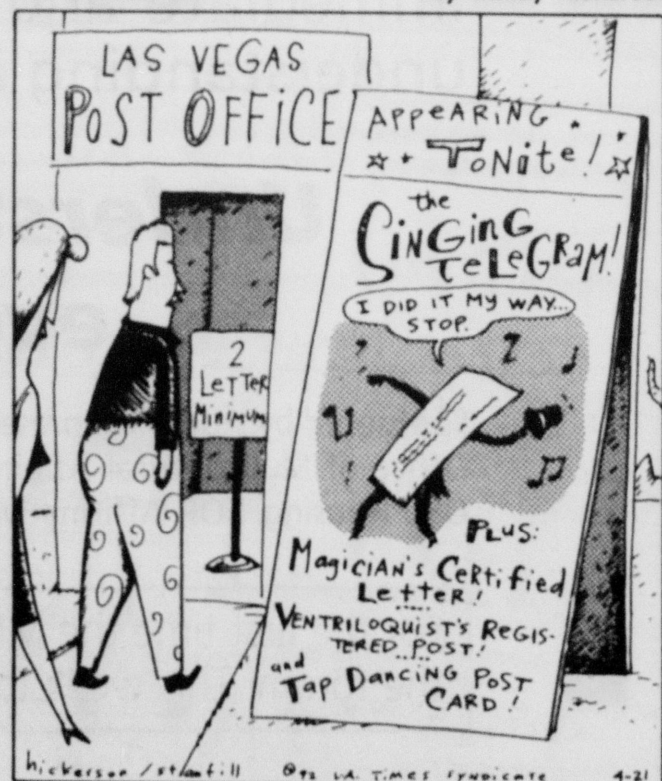 LAS VEGAS
POST OFFICE
APPEARING
TONITE!
the
SINGING
TELEGRAM!
I DID IT MY WAY...
STOP.
2
LETTER
MINIMUM
PLUS:
MAGICIAN'S CERTIFIED
LETTER!
VENTRILOQUIST'S REGIS-
TERED POST!
and
TAP DANCING POST
CARD!
hickerson / stanfill
©92 L.A. TIMES SYNDICATE
4-21